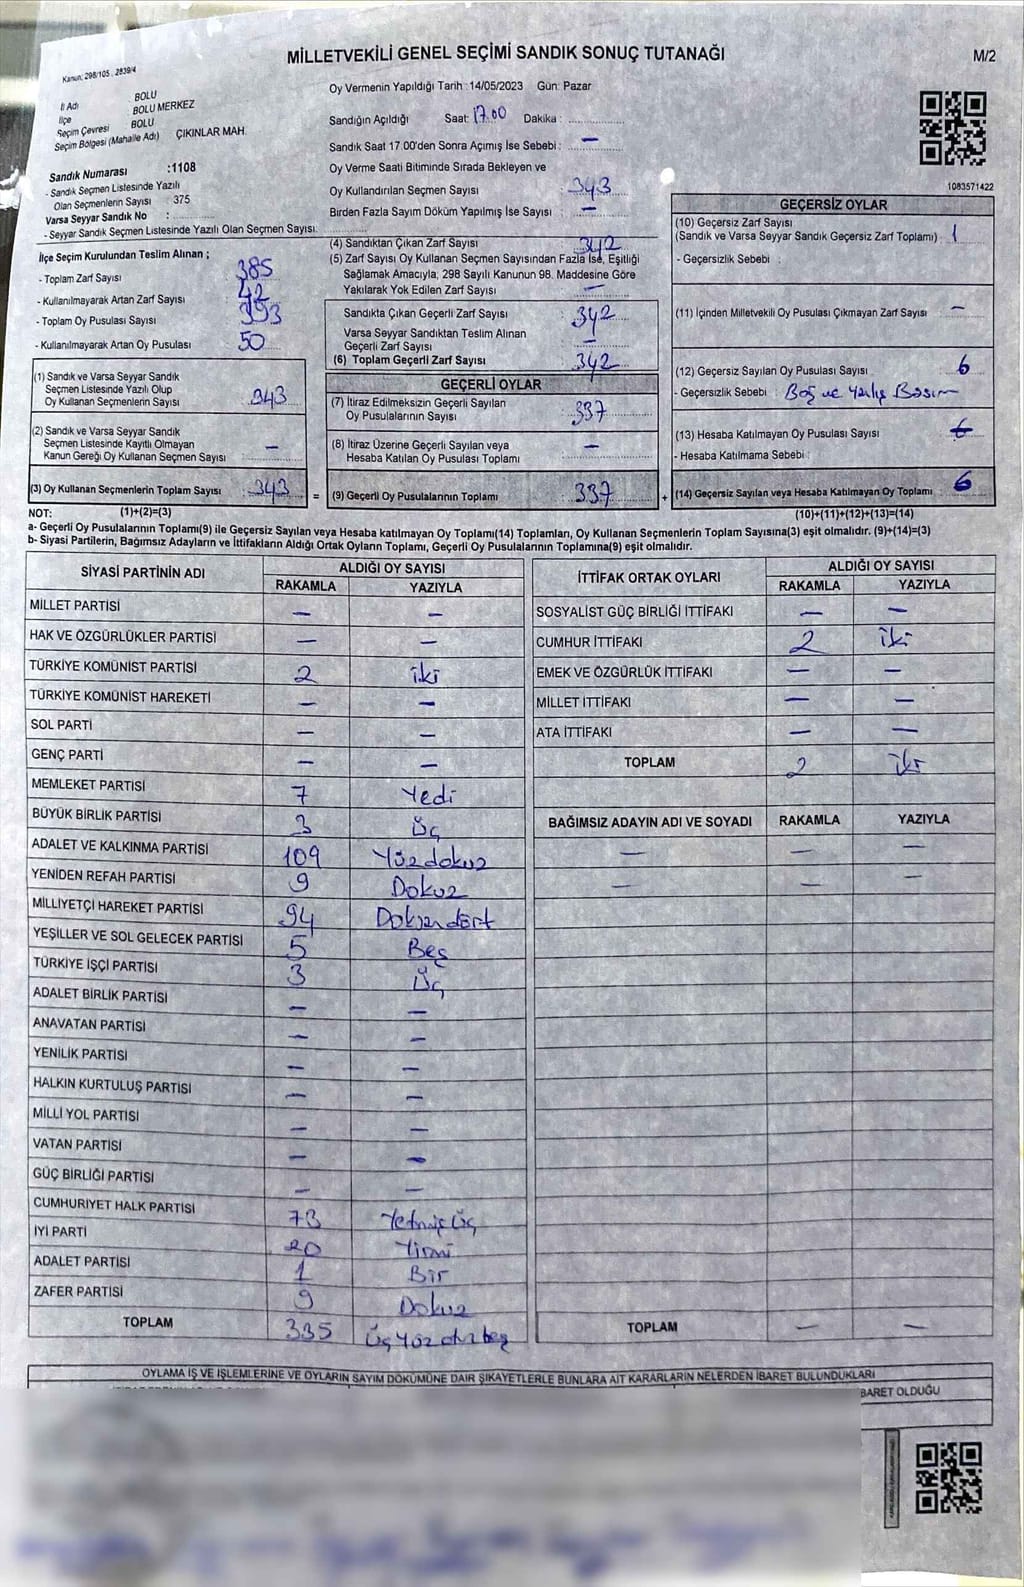 MİLLETVEKİLİ GENEL SEÇİMİ SANDIK SONUÇ TUTANAĞI
M/2
Kanun: 298/105 , 2839/4
İl Adı BOLU
İlçe BOLU MERKEZ
Seçim Çevresi BOLU
Seçim Bölgesi (Mahalle Adı) ÇIKINLAR MAH.
Sandık Numarası :1108
- Sandık Seçmen Listesinde Yazılı
Olan Seçmenlerin Sayısı 375
Varsa Seyyar Sandık No :
- Seyyar Sandık Seçmen Listesinde Yazılı Olan Seçmen Sayısı:
Oy Vermenin Yapıldığı Tarih :14/05/2023 Gün: Pazar
Sandığın Açıldığı Saat: 17.00 Dakika :
Sandık Saat 17.00'den Sonra Açımış İse Sebebi : —
Oy Verme Saati Bitiminde Sırada Bekleyen ve
Oy Kullandırılan Seçmen Sayısı 343
Birden Fazla Sayım Döküm Yapılmış İse Sayısı —
1083571422
İlçe Seçim Kurulundan Teslim Alınan ;
- Toplam Zarf Sayısı 385
- Kullanılmayarak Artan Zarf Sayısı 42
- Toplam Oy Pusulası Sayısı 393
- Kullanılmayarak Artan Oy Pusulası 50
(1) Sandık ve Varsa Seyyar Sandık
Seçmen Listesinde Yazılı Olup
Oy Kullanan Seçmenlerin Sayısı 343
(2) Sandık ve Varsa Seyyar Sandık
Seçmen Listesinde Kayıtlı Olmayan
Kanun Gereği Oy Kullanan Seçmen Sayısı —
(3) Oy Kullanan Seçmenlerin Toplam Sayısı 343 =
(4) Sandıktan Çıkan Zarf Sayısı 342
(5) Zarf Sayısı Oy Kullanan Seçmen Sayısından Fazla İse, Eşitliği
Sağlamak Amacıyla, 298 Sayılı Kanunun 98. Maddesine Göre
Yakılarak Yok Edilen Zarf Sayısı —
Sandıkta Çıkan Geçerli Zarf Sayısı 342
Varsa Seyyar Sandıktan Teslim Alınan
Geçerli Zarf Sayısı —
(6) Toplam Geçerli Zarf Sayısı 342
GEÇERLİ OYLAR
(7) İtiraz Edilmeksizin Geçerli Sayılan
Oy Pusulalarının Sayısı 337
(8) İtiraz Üzerine Geçerli Sayılan veya
Hesaba Katılan Oy Pusulası Toplamı —
(9) Geçerli Oy Pusulalarının Toplamı 337 +
GEÇERSİZ OYLAR
(10) Geçersiz Zarf Sayısı
(Sandık ve Varsa Seyyar Sandık Geçersiz Zarf Toplamı) 1
- Geçersizlik Sebebi :
(11) İçinden Milletvekili Oy Pusulası Çıkmayan Zarf Sayısı —
(12) Geçersiz Sayılan Oy Pusulası Sayısı 6
- Geçersizlik Sebebi Boş ve Yanlış Basım
(13) Hesaba Katılmayan Oy Pusulası Sayısı 6
- Hesaba Katılmama Sebebi :
(14) Geçersiz Sayılan veya Hesaba Katılmayan Oy Toplamı 6
NOT: (1)+(2)=(3) (10)+(11)+(12)+(13)=(14)
a- Geçerli Oy Pusulalarının Toplamı(9) ile Geçersiz Sayılan veya Hesaba katılmayan Oy Toplamı(14) Toplamları, Oy Kullanan Seçmenlerin Toplam Sayısına(3) eşit olmalıdır. (9)+(14)=(3)
b- Siyasi Partilerin, Bağımsız Adayların ve İttifakların Aldığı Ortak Oyların Toplamı, Geçerli Oy Pusulalarının Toplamına(9) eşit olmalıdır.
SİYASİ PARTİNİN ADI ALDIĞI OY SAYISI
RAKAMLA YAZIYLA
MİLLET PARTİSİ — —
HAK VE ÖZGÜRLÜKLER PARTİSİ — —
TÜRKİYE KOMÜNİST PARTİSİ 2 iki
TÜRKİYE KOMÜNİST HAREKETİ — —
SOL PARTİ — —
GENÇ PARTİ — —
MEMLEKET PARTİSİ 7 Yedi
BÜYÜK BİRLİK PARTİSİ 3 Üç
ADALET VE KALKINMA PARTİSİ 109 Yüzdokuz
YENİDEN REFAH PARTİSİ 9 Dokuz
MİLLİYETÇİ HAREKET PARTİSİ 94 Doksandört
YEŞİLLER VE SOL GELECEK PARTİSİ 5 Beş
TÜRKİYE İŞÇİ PARTİSİ 3 Üç
ADALET BİRLİK PARTİSİ — —
ANAVATAN PARTİSİ — —
YENİLİK PARTİSİ — —
HALKIN KURTULUŞ PARTİSİ — —
MİLLİ YOL PARTİSİ — —
VATAN PARTİSİ — —
GÜÇ BİRLİĞİ PARTİSİ — —
CUMHURİYET HALK PARTİSİ 73 Yetmişüç
İYİ PARTİ 20 Yirmi
ADALET PARTİSİ 1 Bir
ZAFER PARTİSİ 9 Dokuz
TOPLAM 335 Üçyüzotuzbeş
İTTİFAK ORTAK OYLARI ALDIĞI OY SAYISI
RAKAMLA YAZIYLA
SOSYALİST GÜÇ BİRLİĞİ İTTİFAKI — —
CUMHUR İTTİFAKI 2 iki
EMEK VE ÖZGÜRLÜK İTTİFAKI — —
MİLLET İTTİFAKI — —
ATA İTTİFAKI — —
TOPLAM 2 iki
BAĞIMSIZ ADAYIN ADI VE SOYADI RAKAMLA YAZIYLA
— — —
— — —
TOPLAM — —
OYLAMA İŞ VE İŞLEMLERİNE VE OYLARIN SAYIM DÖKÜMÜNE DAİR ŞİKAYETLERLE BUNLARA AİT KARARLARIN NELERDEN İBARET BULUNDUKLARI
BARET OLDUĞU